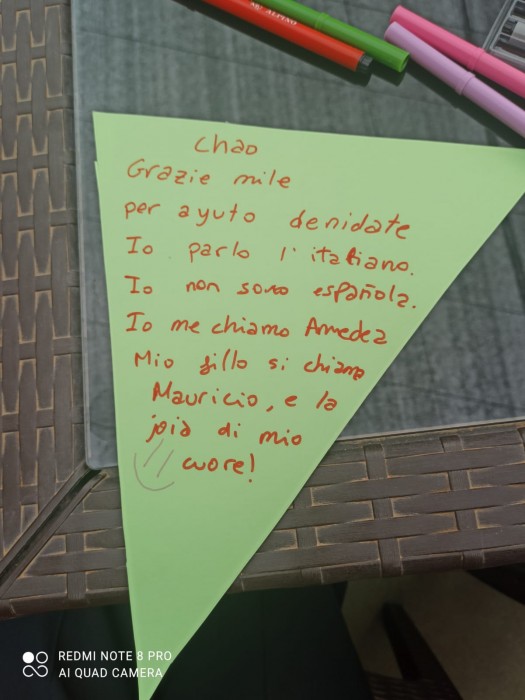 MR ALPINO
Chao
Grazie mile
per ayuto denidate
Io parlo l'italiano.
Io non sono española.
Io me chiamo Amedea
Mio fillo si chiama
Mauricio, e la
joia di mio
cuore!
REDMI NOTE 8 PRO
AI QUAD CAMERA